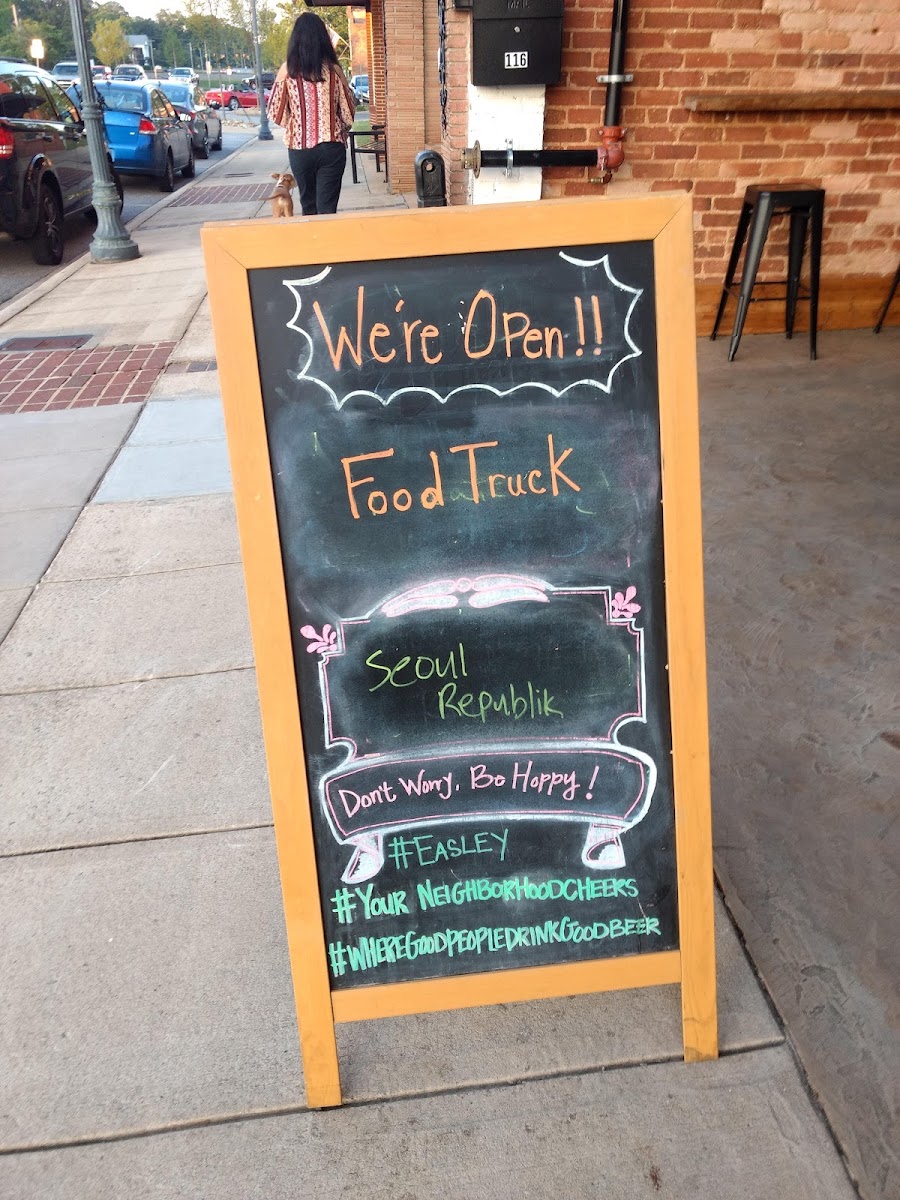 MAIL
116
We're Open!!
Food Truck
Seoul
Republik
Don't Worry, Be Hoppy!
#EASLEY
#YOUR NEIGHBORHOODCHEERS
#WHEREGOODPEOPLEDRINKGOODBEER